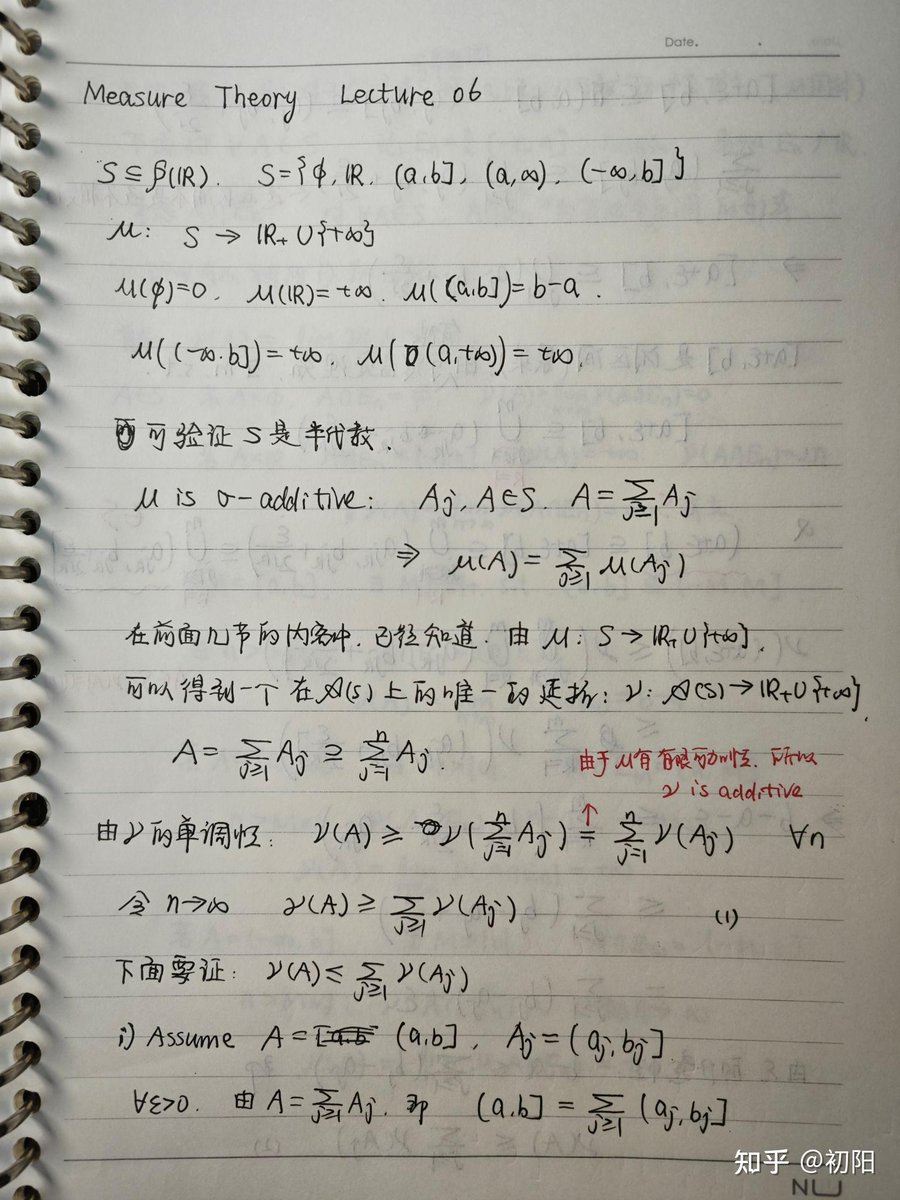 Date.
Measure Theory Lecture 06
S ⊆ β(ℝ). S={φ, ℝ, (a,b], (a,∞), (-∞,b]}
μ: S → ℝ₊∪{+∞}
μ(φ)=0, μ(ℝ)=+∞. μ((a,b])=b-a.
μ((-∞.b])=+∞. μ((a,+∞))=+∞.
可验证 S 是半代数.
μ is σ-additive: Aj, A∈S. A=∑_{j≥1} Aj
⇒ μ(A)=∑_{j≥1} μ(Aj)
在前面几节的内容中, 已经知道. 由 μ: S → ℝ₊∪{+∞}.
可以得到一个在 𝒜(S) 上的唯一的延拓: ν: 𝒜(S)→ℝ₊∪{+∞}.
A = ∑_{j≥1} Aj ⊇ ∑_{j=1}^{n} Aj.
由于 μ有有限可加性. 所以
ν is additive
由 ν 的单调性: ν(A) ≥ ν(∑_{j=1}^{n} Aj) = ∑_{j=1}^{n} ν(Aj) ∀n
令 n→∞ ν(A) ≥ ∑_{j≥1} ν(Aj) (1)
下面要证: ν(A) ≤ ∑_{j≥1} ν(Aj)
i) Assume A = (a,b], Aj=(aj,bj].
∀ε>0. 由 A=∑_{j≥1} Aj. 即 (a,b] = ∑_{j≥1} (aj,bj]
知乎 @初阳